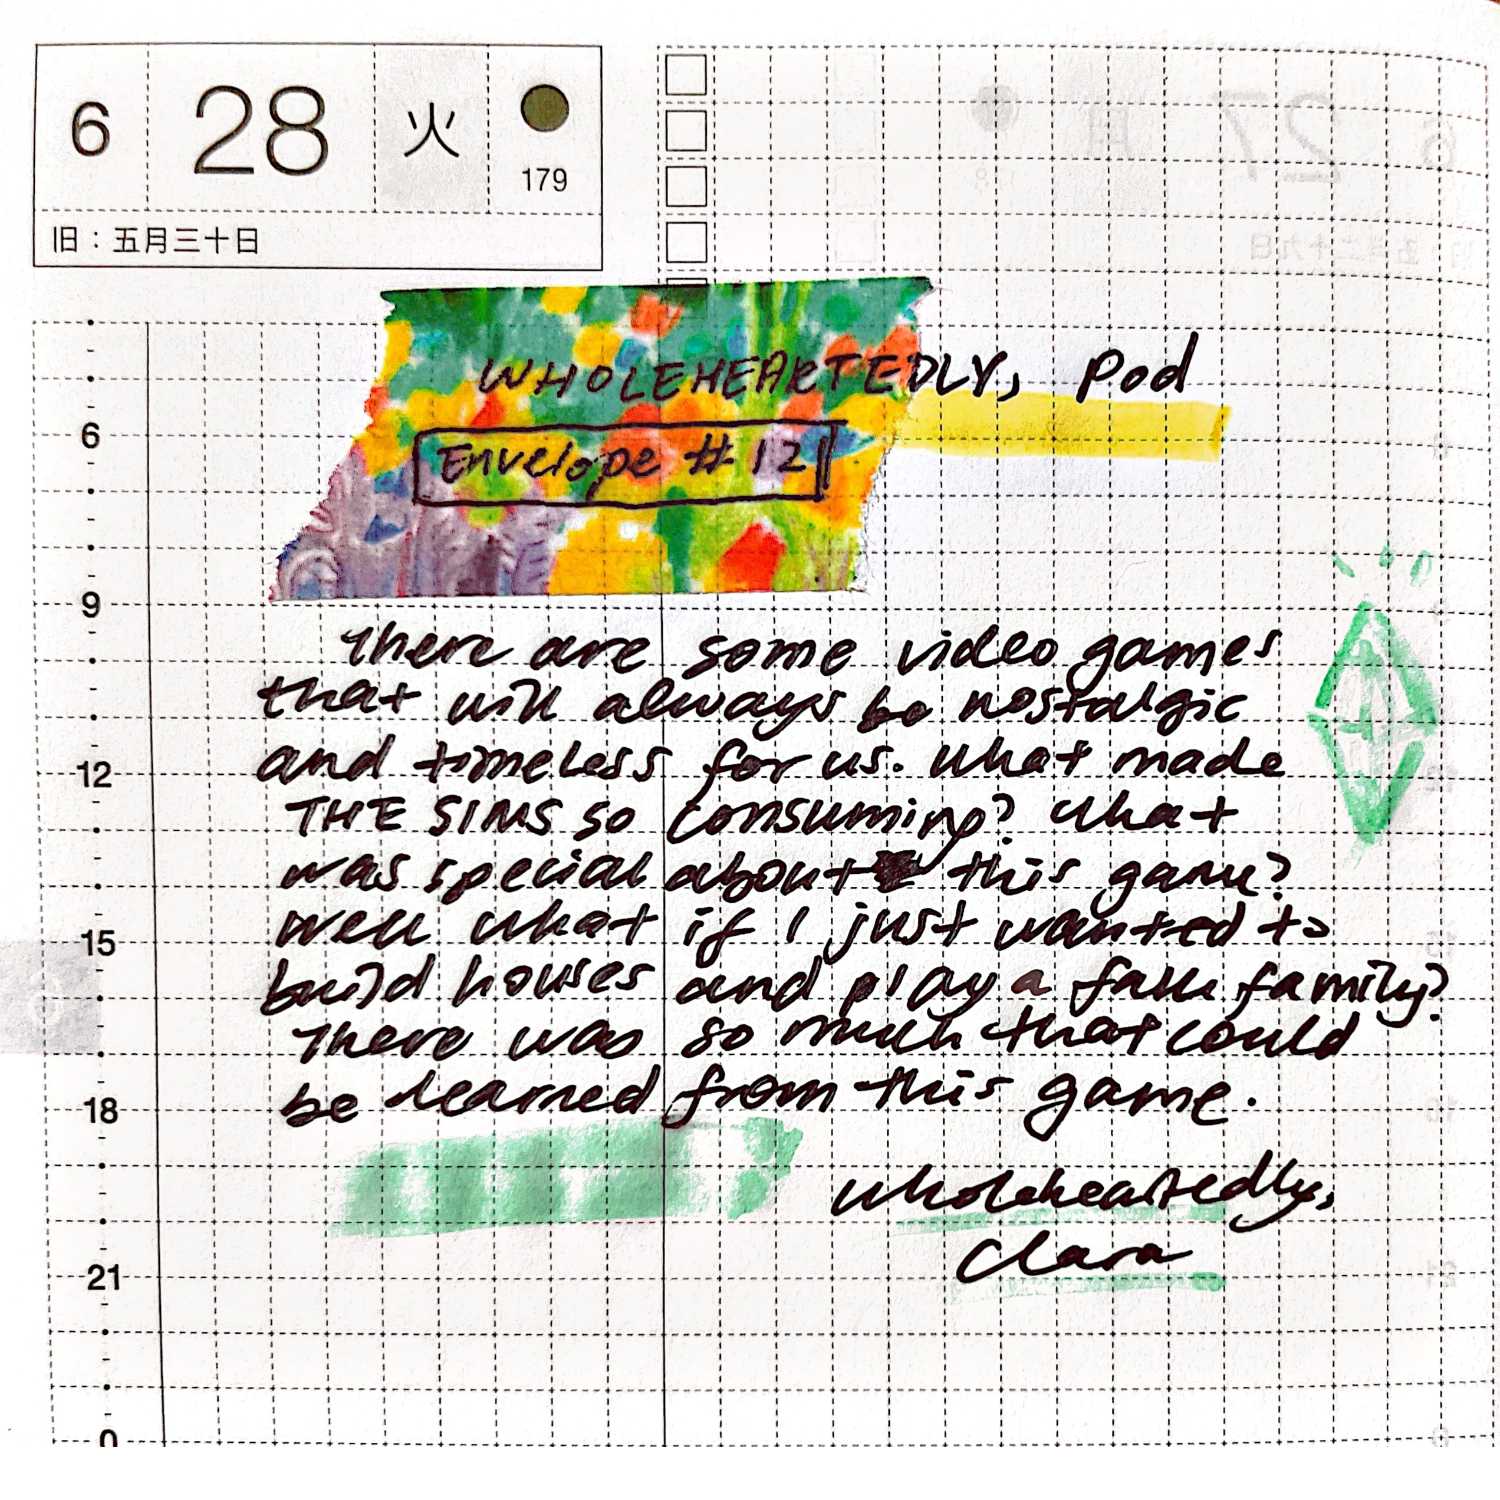 6 28 火
179
旧：五月三十日
WHOLEHEARTEDLY, Pod
Envelope #12
There are some video games
that will always be nostalgic
and timeless for us. What made
THE SIMS so consuming? What
was special about this game?
Well what if I just wanted to
build houses and play a fake family?
There was so much that could
be learned from this game.
Wholeheartedly,
Clara
6
9
12
15
18
21
0